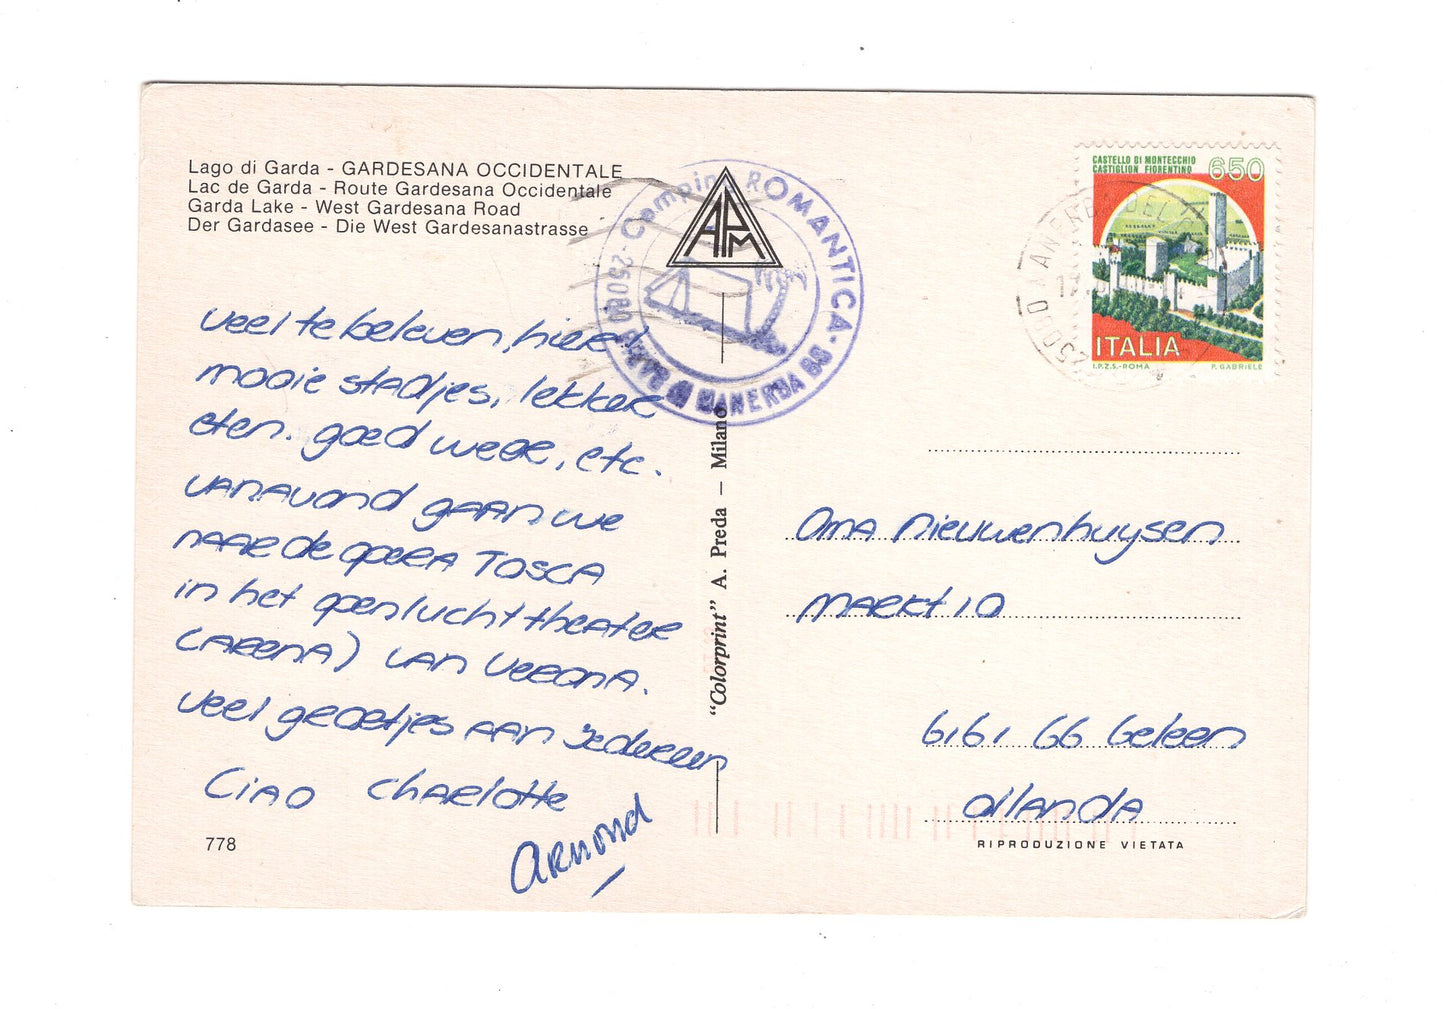 Lago di Garda - GARDESANA OCCIDENTALE
Lac de Garda - Route Gardesana Occidentale
Garda Lake - West Gardesana Road
Der Gardasee - Die West Gardesanastrasse
APM
Camping ROMANTICA - 25080 DI MANERBA BS
CASTELLO DI MONTECCHIO
CASTIGLION FIORENTINO
650
ITALIA
I.P.Z.S.-ROMA P. GABRIELE
MANERBA DEL
veel te beleven, hier!
mooie stadjes, lekker
eten. goed weer, etc.
vanavond gaan we
naar de opera Tosca
in het openluchttheater
(arena) van Verona.
veel groetjes aan iedereen
Ciao Charlotte
Armond
"Colorprint" A. Preda – Milano
Oma Nieuwenhuysen
Markt 10
6161 GG Geleen
Ollanda
778
RIPRODUZIONE VIETATA